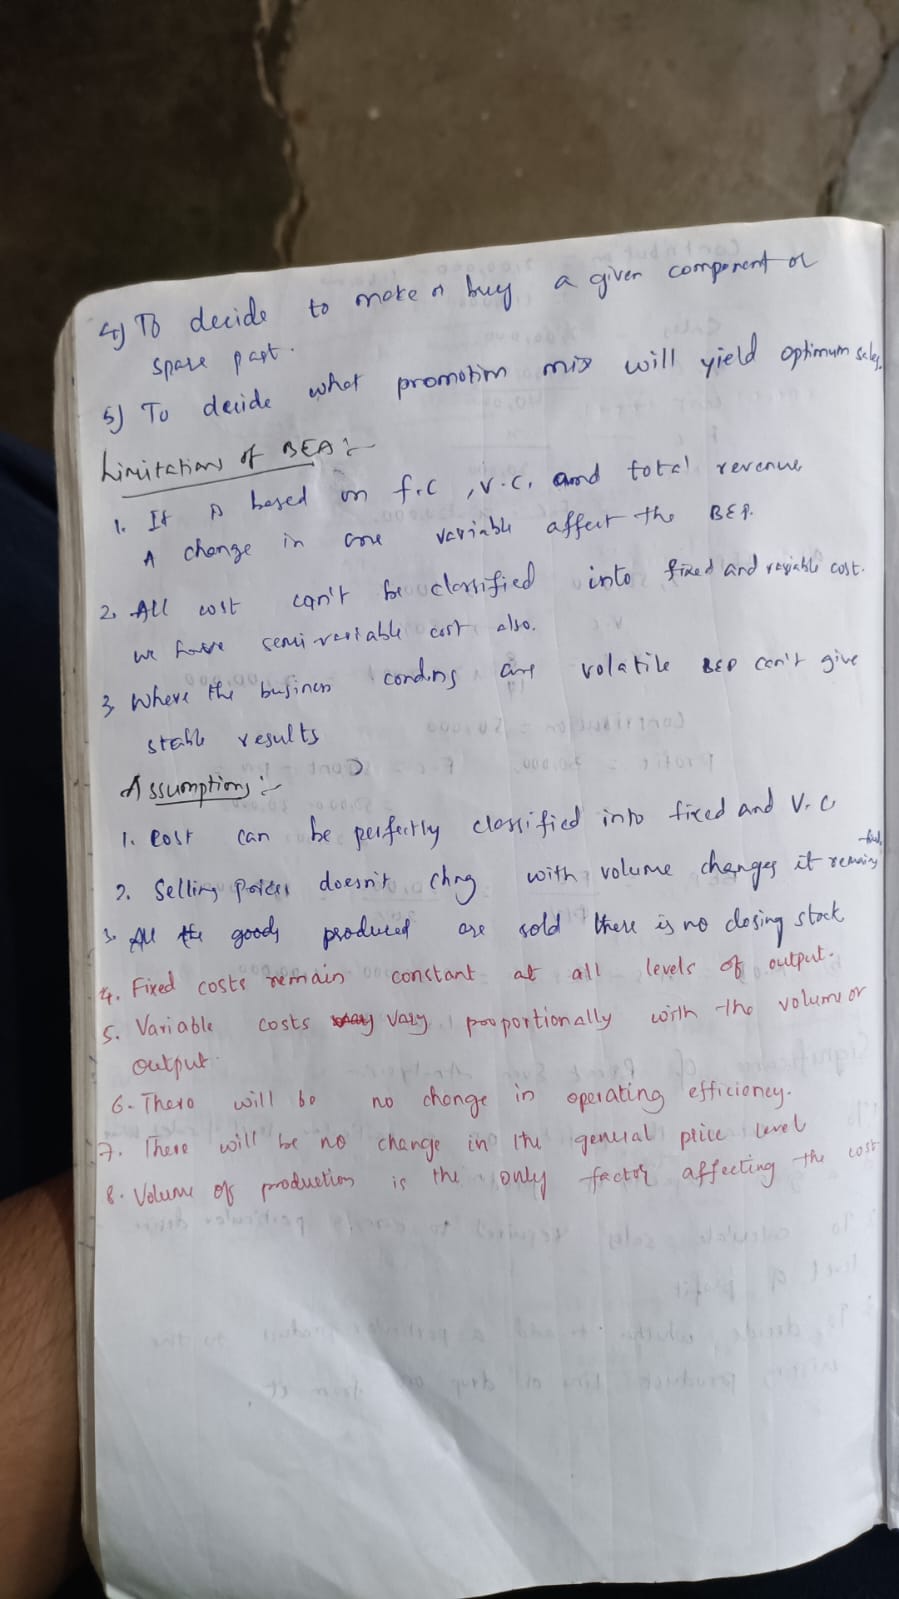 4) To decide to make or buy a given component or
spare part.
5) To decide what promotion mix will yield optimum sales.
Limitations of BEA :-
1. It is based on F.C, V.C, and total revenue,
A change in one variable affect the BEP.
2. All cost can't be classified into fixed and variable cost.
we have semi variable cost also.
3. Where the business condns are volatile BEP can't give
stable results
Assumptions :-
1. Cost can be perfectly classified into fixed and V.C
2. Selling prices doesn't chng with volume changes it remains fixed
3. All the goods produced are sold there is no closing stock
4. Fixed costs remain constant at all levels of output.
5. Variable costs vary proportionally with the volume or
output.
6. There will be no change in operating efficiency.
7. There will be no change in the general price level
8. Volume of production is the only factor affecting the cost